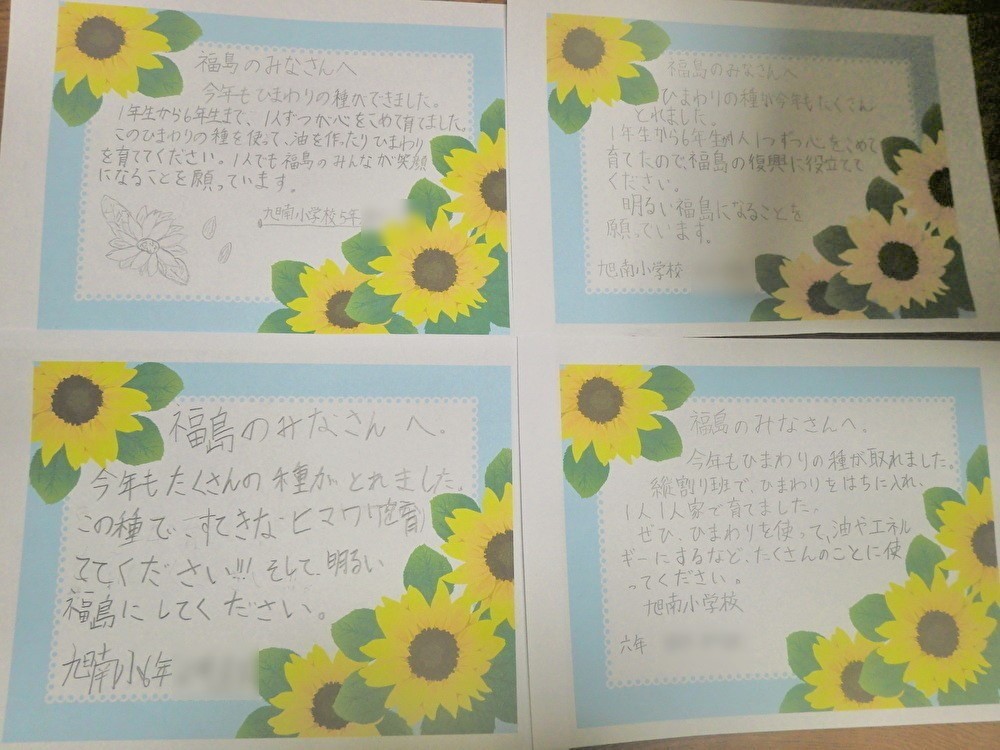 福島のみなさんへ
今年もひまわりの種ができました。
1年生から6年生まで、1人ずつが心をこめて育てました。
このひまわりの種を使って、油を作ったりひまわり
を育ててください。1人でも福島のみんなが笑顔
になることを願っています。
旭南小学校5年
福島のみなさんへ
ひまわりの種が今年もたくさん
とれました。
1年生から6年生が1人1つずつ心をこめて
育てたので、福島の復興に役立てて
ください。
明るい福島になることを
願っています。
旭南小学校
福島のみなさんへ.
今年もたくさんの種がとれました。
この種で、すてきなヒマワリを育
ててください!!! そして、明るい
福島にしてください。
旭南小6年
福島のみなさんへ。
今年もひまわりの種が取れました。
縦割り班で、ひまわりをはちに入れ、
1人1人家で育てました。
ぜひ、ひまわりを使って、油やエネル
ギーにするなど、たくさんのことに使
ってください。
旭南小学校
六年